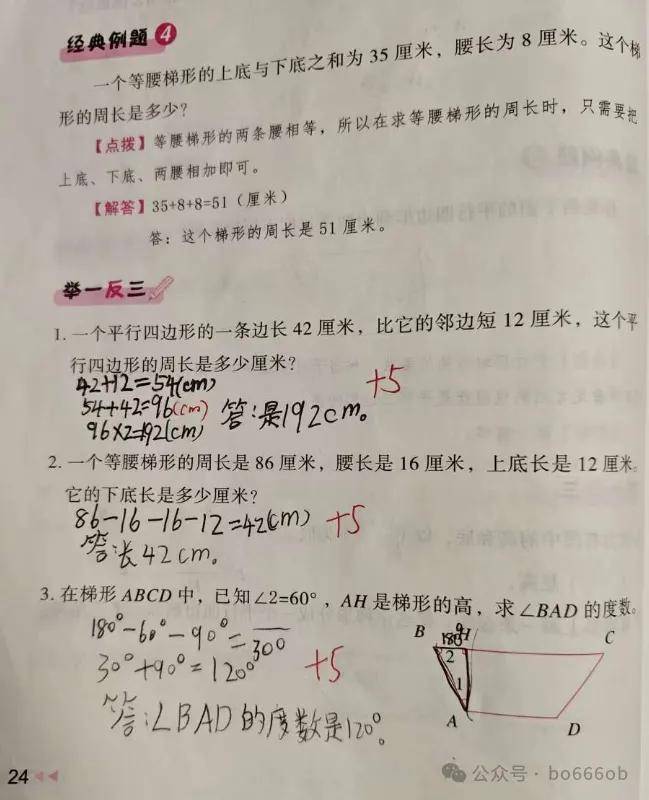 经典例题4
一个等腰梯形的上底与下底之和为 35 厘米，腰长为 8 厘米。这个梯
形的周长是多少？
【点拨】等腰梯形的两条腰相等，所以在求等腰梯形的周长时，只需要把
上底、下底、两腰相加即可。
【解答】35+8+8=51（厘米）
答：这个梯形的周长是 51 厘米。
举一反三
1. 一个平行四边形的一条边长 42 厘米，比它的邻边短 12 厘米，这个平
行四边形的周长是多少厘米？
42+12=54(cm)
54+42=96(cm)
96×2=192(cm)
答：是192cm。
+5
2. 一个等腰梯形的周长是 86 厘米，腰长是 16 厘米，上底长是 12 厘米。
它的下底长是多少厘米？
86-16-16-12=42(cm)
+5
答：长42cm。
3. 在梯形 ABCD 中，已知∠2=60°，AH 是梯形的高，求∠BAD 的度数。
180°-60°-90°=300
30°+90°=120°
+5
答：∠BAD的度数是120°。
B
H
C
2
1
A
D
24
公众号·bo666ob